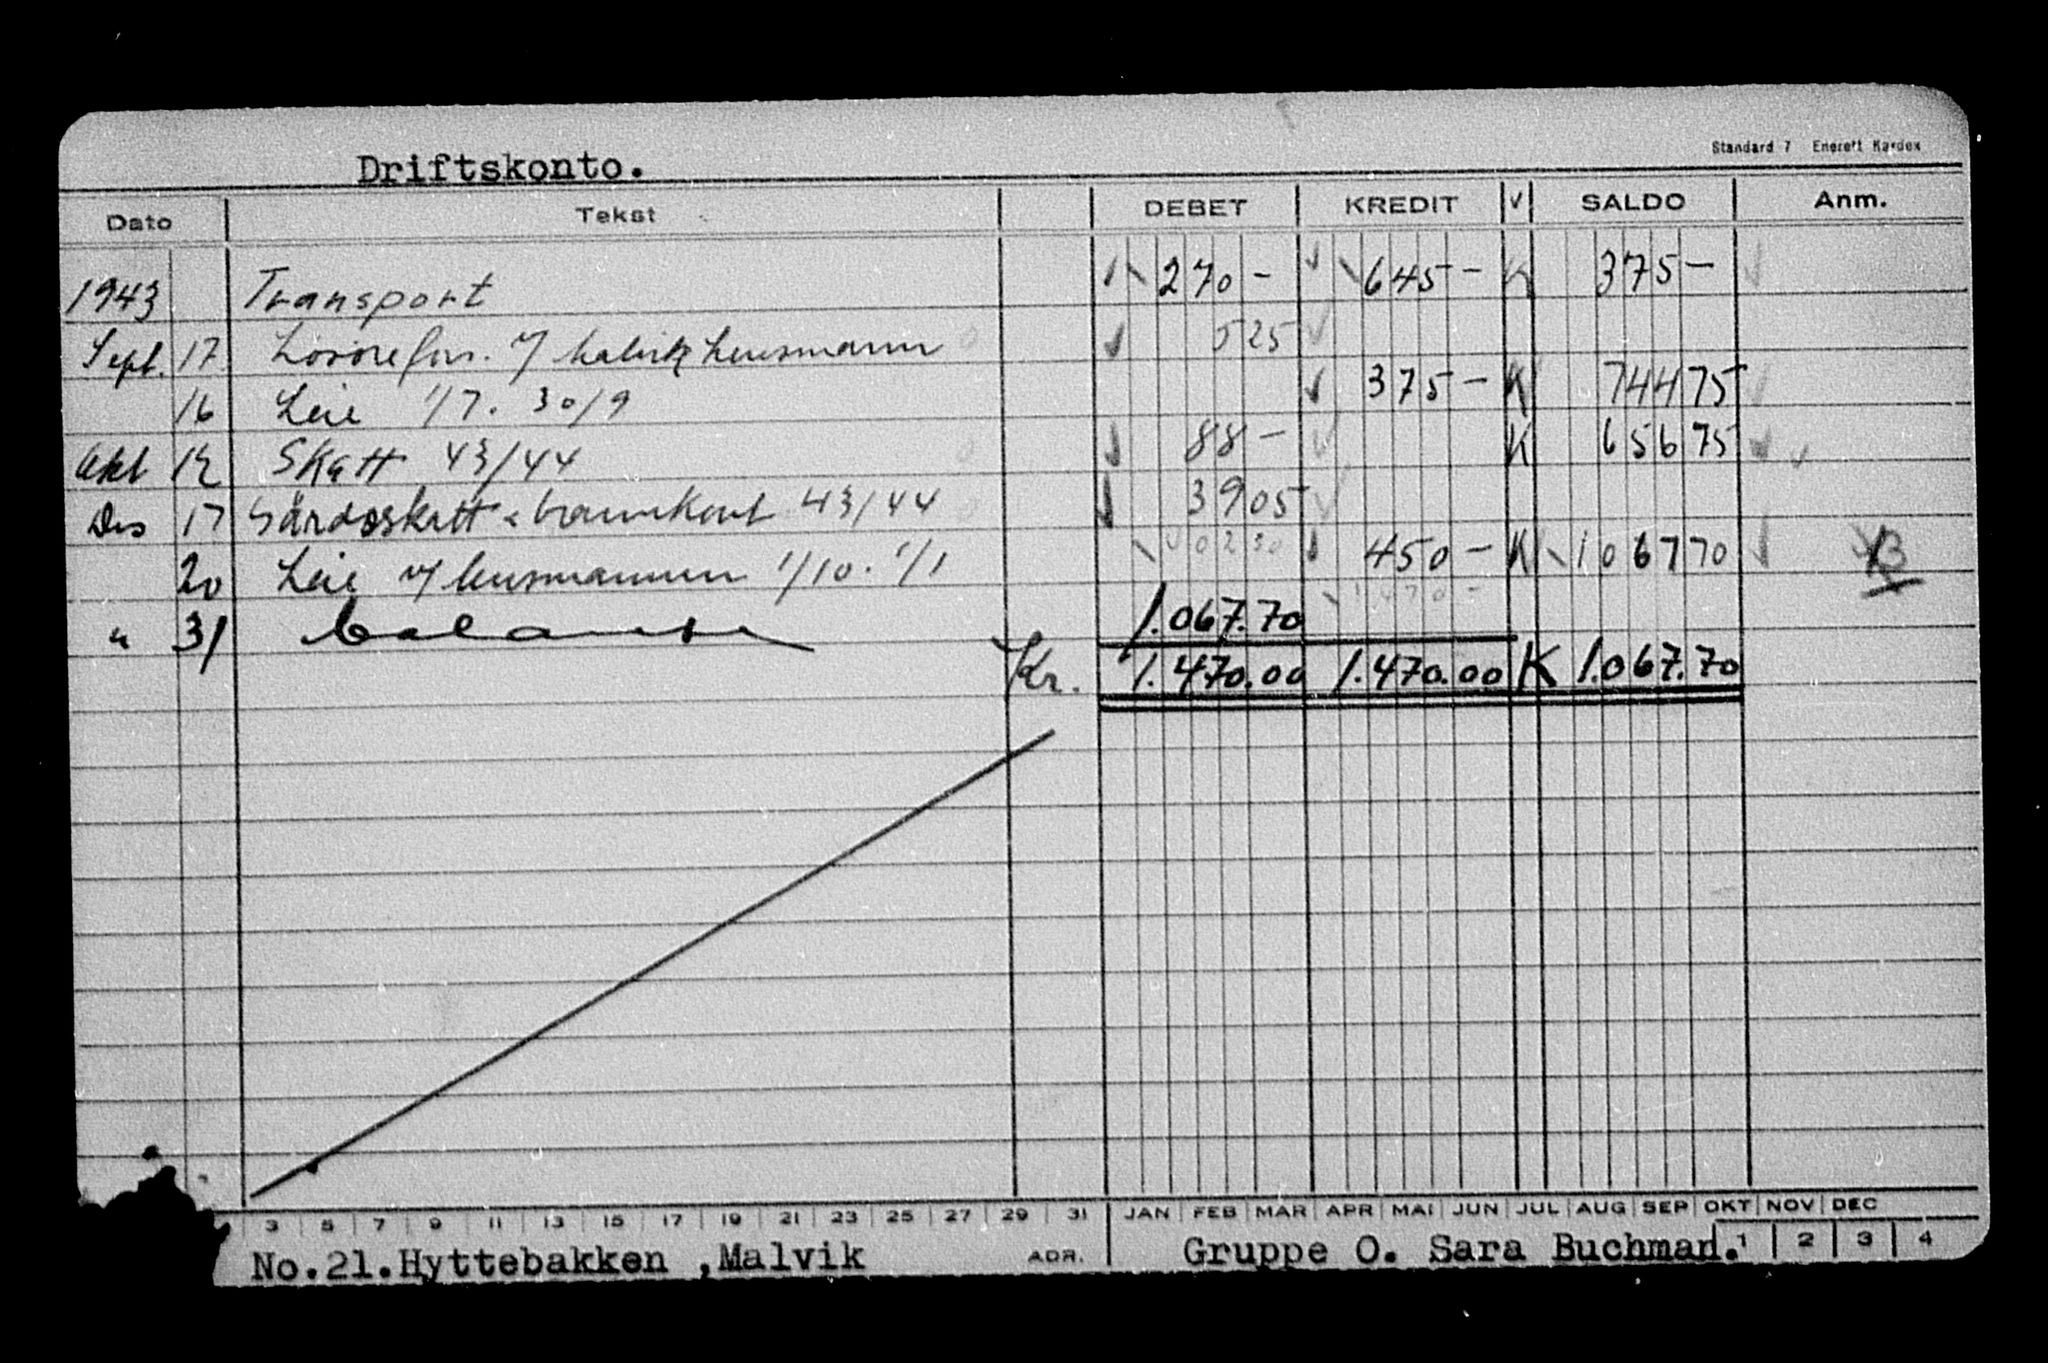 Standard 7 Enerett Kardex
Driftskonto.
Dato Tekst DEBET KREDIT V SALDO Anm.
1943 Transport 270 - 645 - K 375 -
Sept. 17 Lensmann 525
16 Leie 1/7. 30/9 375 - K 74475
Okt 12 Skatt 43/44 88 - K 65675
Des 17 Gårdsskatt 43/44 3905
40230
20 Leie v/ lensmannen 1/10. 1/1 450 - K 106770
1470 -
" 31 balanse 1.067.70
Kr. 1.470.00 1.470.00 K 1.067.70
3 5 7 9 11 13 15 17 19 21 23 25 27 29 31 JAN FEB MAR APR MAI JUN JUL AUG SEP OKT NOV DEC
No.21.Hyttebakken ,Malvik ADR. Gruppe O. Sara Buchman. 1 2 3 4